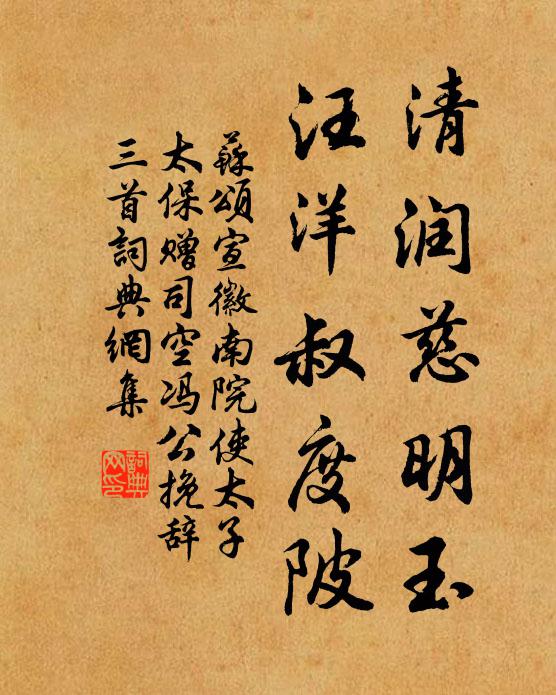 清润慈明玉
汪洋叔度陂
蘇頌宣徽南院使太子
太保赠司空冯公挽辞
三首詞典網集
詞典網印